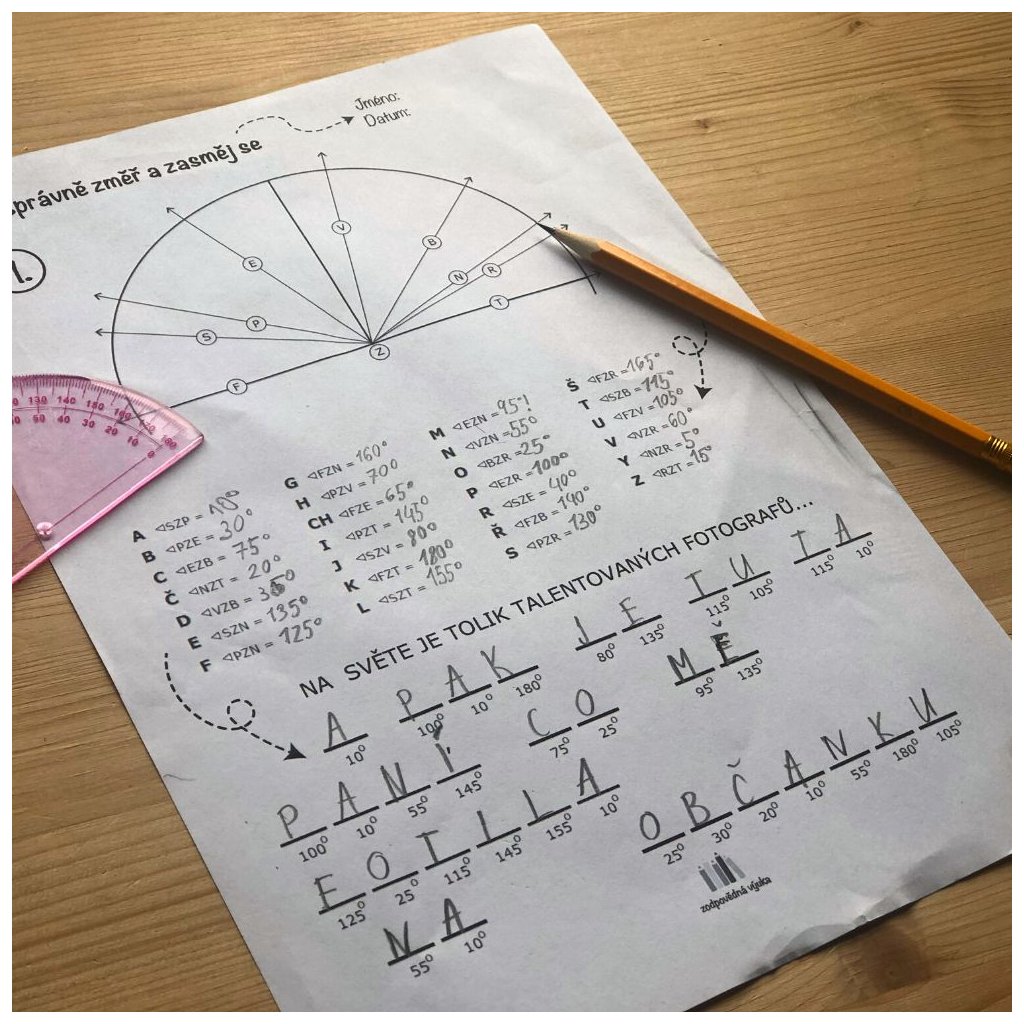 Jméno:
Datum:
správně změř a zasměj se
1.
V
B
E
N
R
T
P
S
Z
F
130 140 150
50 40 30 20 10 0
A ∢SZP = 10°
B ∢PZE = 30°
C ∢EZB = 75°
Č ∢NZT = 20°
D ∢VZB =
E ∢SZN = 135°
F ∢PZN = 125°
G ∢FZN = 160°
H ∢PZV = 70°
CH ∢FZE = 65°
I ∢PZT = 145°
J ∢SZV = 80°
K ∢FZT = 180°
L ∢SZT = 155°
M ∢EZN = 95°!
N ∢VZN = 55°
O ∢BZR = 25°
P ∢EZR = 100°
R ∢SZE = 40°
Ř ∢FZB = 140°
S ∢PZR = 130°
Š ∢FZR = 165°
T ∢SZB = 115°
U ∢FZV = 105°
V ∢VZR = 60°
Y ∢NZR = 5°
Z ∢RZT = 15°
NA SVĚTE JE TOLIK TALENTOVANÝCH FOTOGRAFŮ...
A PAK JE TU TA
10° 100° 10° 180° 80° 135° 115° 105° 115° 10°
PANÍ CO MĚ
100° 10° 55° 145° 75° 25° 95° 135°
FOTILA OBČANKU
125° 25° 115° 145° 155° 10° 25° 30° 20° 10° 55° 180° 105°
NA
55° 10°
zodpovědná výuka